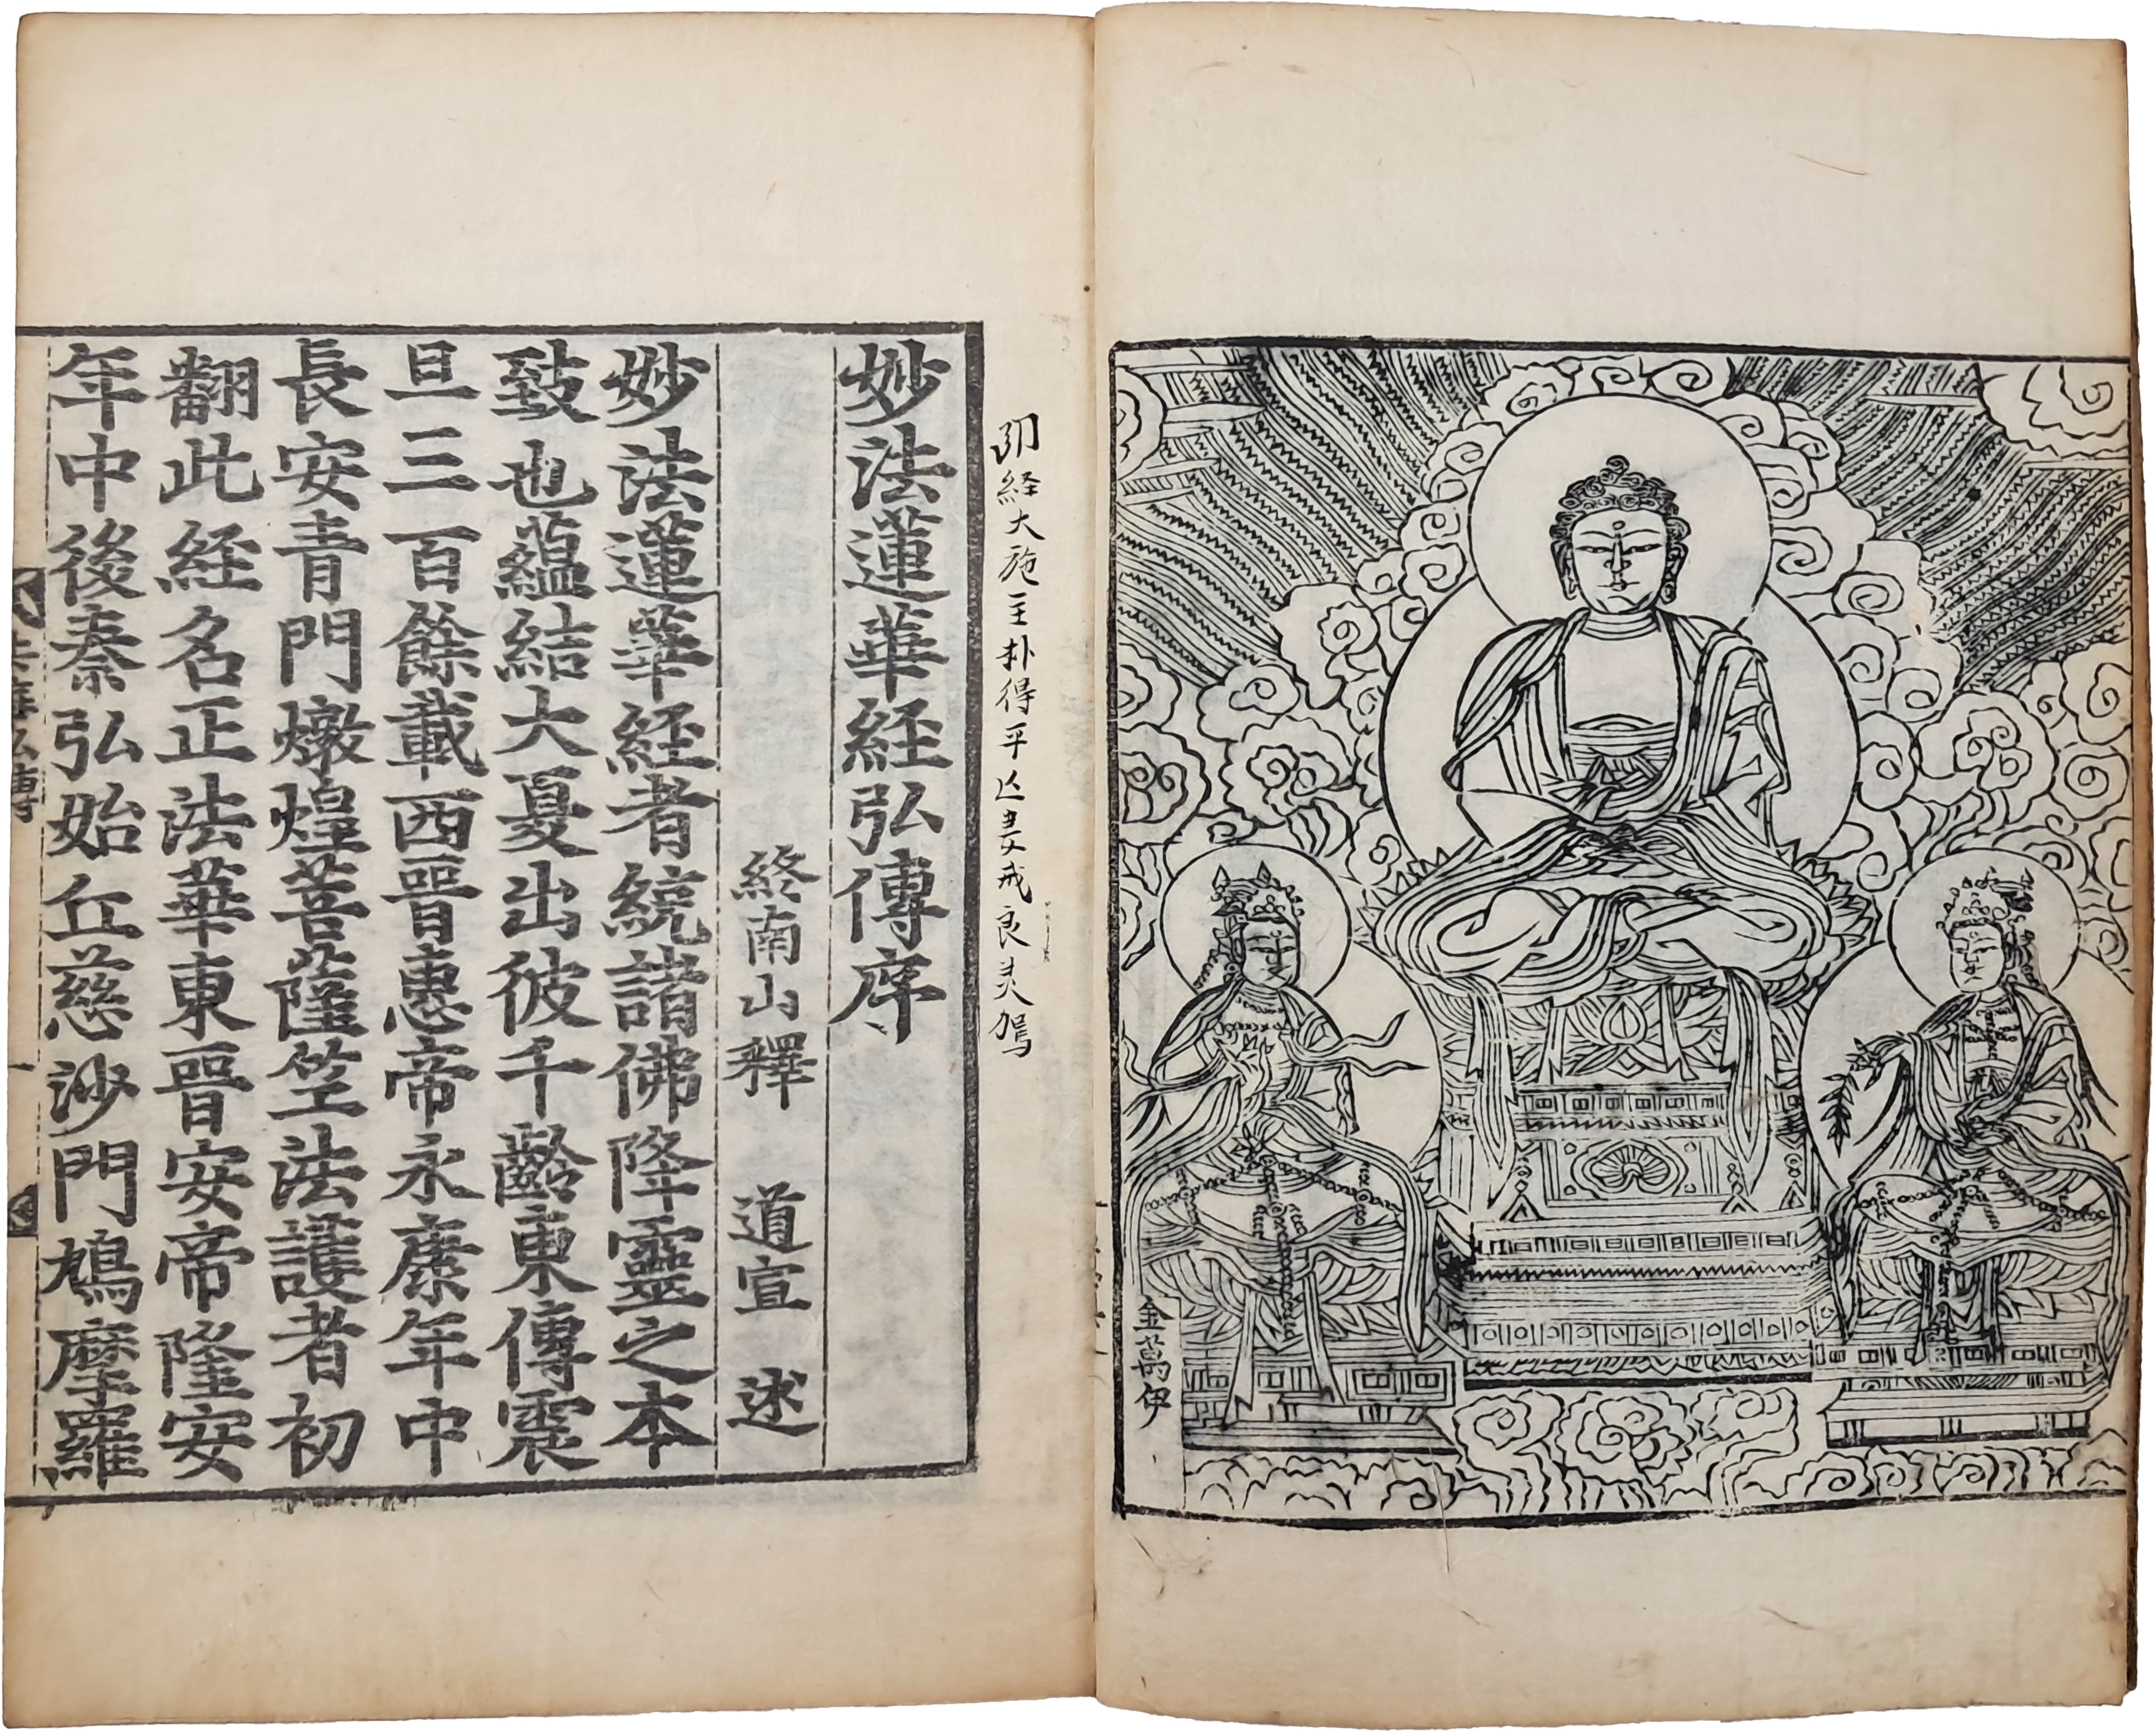 金萬伊
經大施主朴得平
妙法蓮華経弘傳序
終南山釋　道宣　述
妙法蓮華経者統諸佛降靈之本
致也蘊結大夏出彼千齡東傳震
旦三百餘載西晉惠帝永康年中
長安青門燉煌菩薩竺法護者初
翻此経名正法華東晉安帝隆安
年中後秦弘始丘慈沙門鳩摩羅